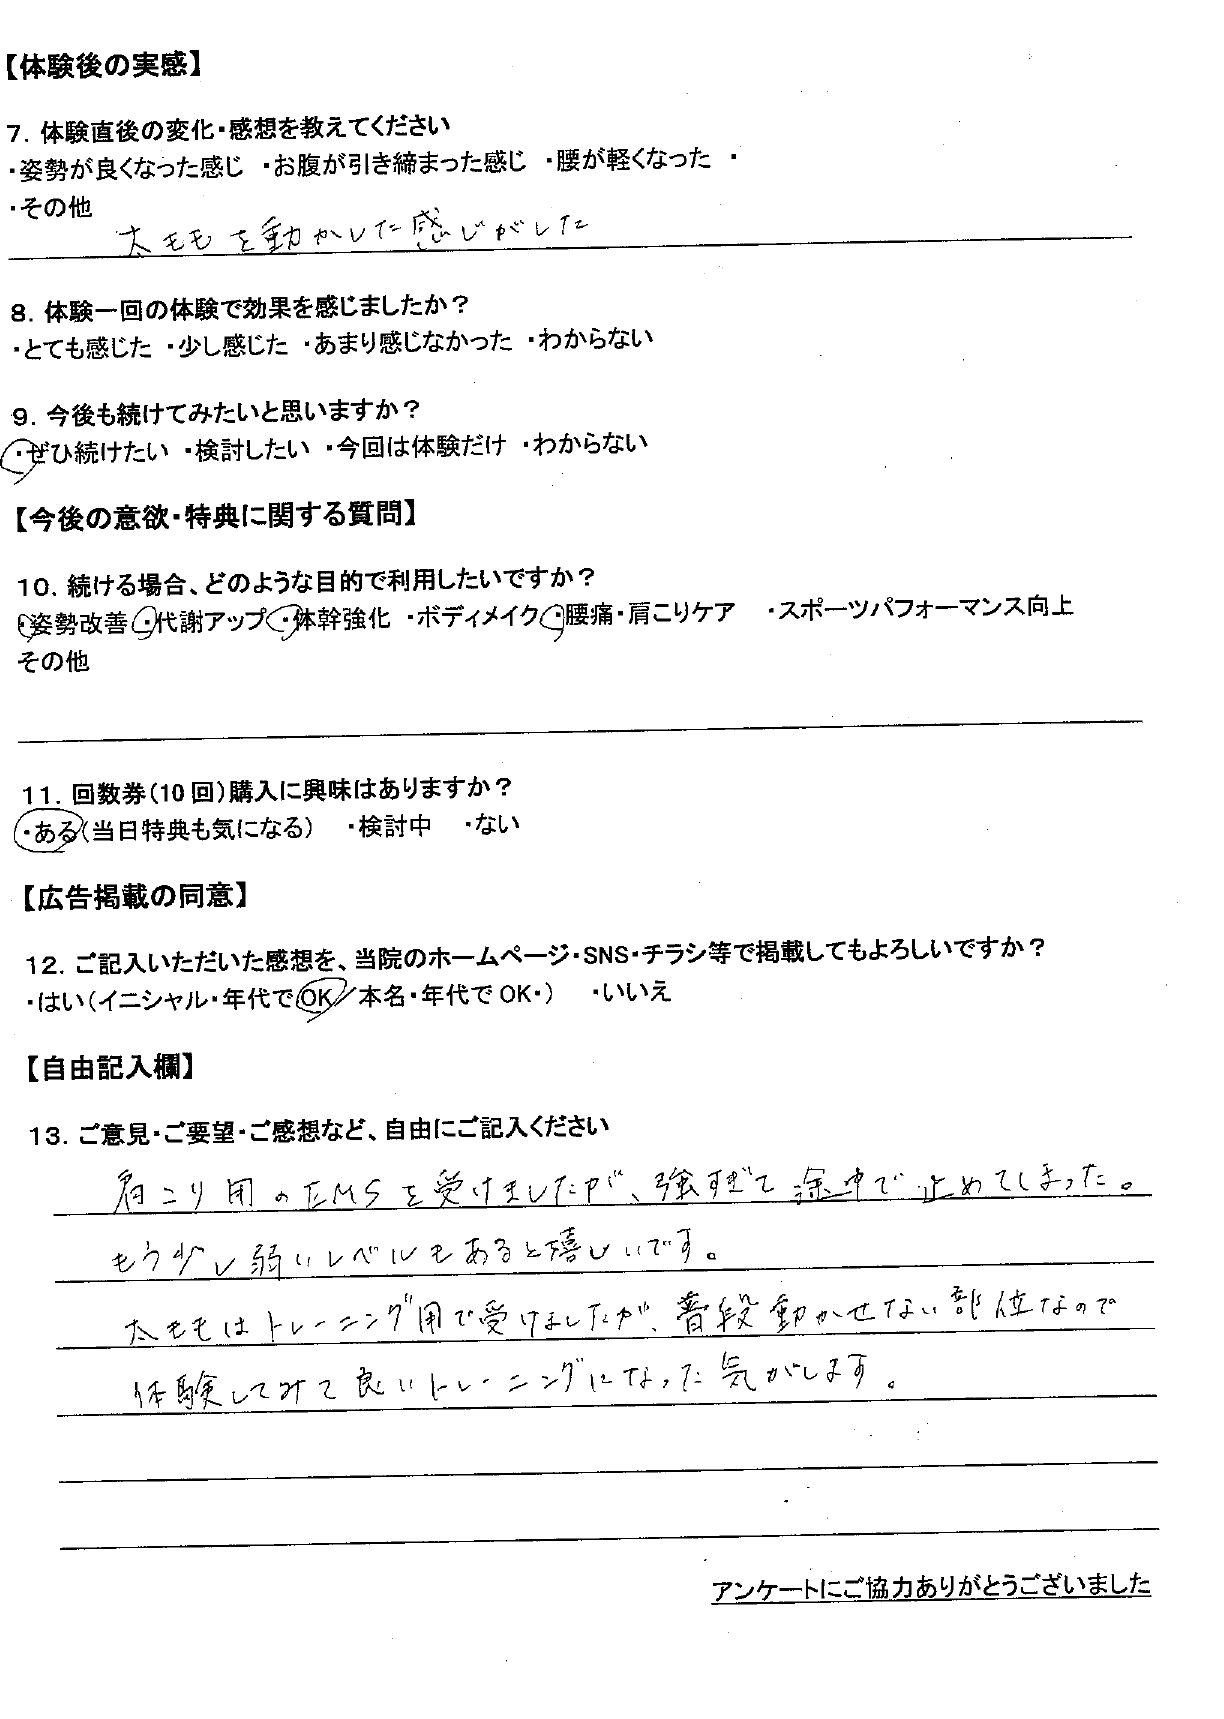 【体験後の実感】
7. 体験直後の変化・感想を教えてください
・姿勢が良くなった感じ ・お腹が引き締まった感じ ・腰が軽くなった ・
・その他
太モモを動かした感じがした
8. 体験一回の体験で効果を感じましたか?
・とても感じた ・少し感じた ・あまり感じなかった ・わからない
9. 今後も続けてみたいと思いますか?
・ぜひ続けたい ・検討したい ・今回は体験だけ ・わからない
【今後の意欲・特典に関する質問】
10. 続ける場合、どのような目的で利用したいですか?
・姿勢改善 ・代謝アップ ・体幹強化 ・ボディメイク ・腰痛・肩こりケア ・スポーツパフォーマンス向上
その他
11. 回数券(10回)購入に興味はありますか?
・ある(当日特典も気になる) ・検討中 ・ない
【広告掲載の同意】
12. ご記入いただいた感想を、当院のホームページ・SNS・チラシ等で掲載してもよろしいですか?
・はい(イニシャル・年代でOK/本名・年代でOK・) ・いいえ
【自由記入欄】
13. ご意見・ご要望・ご感想など、自由にご記入ください
肩こり用のEMSを受けましたが、強すぎて途中で止めてしまった。
もう少し弱いレベルもあると嬉しいです。
太モモはトレーニング用で受けましたが、普段動かせない部位なので
体験してみて良いトレーニングになった気がします。
アンケートにご協力ありがとうございました